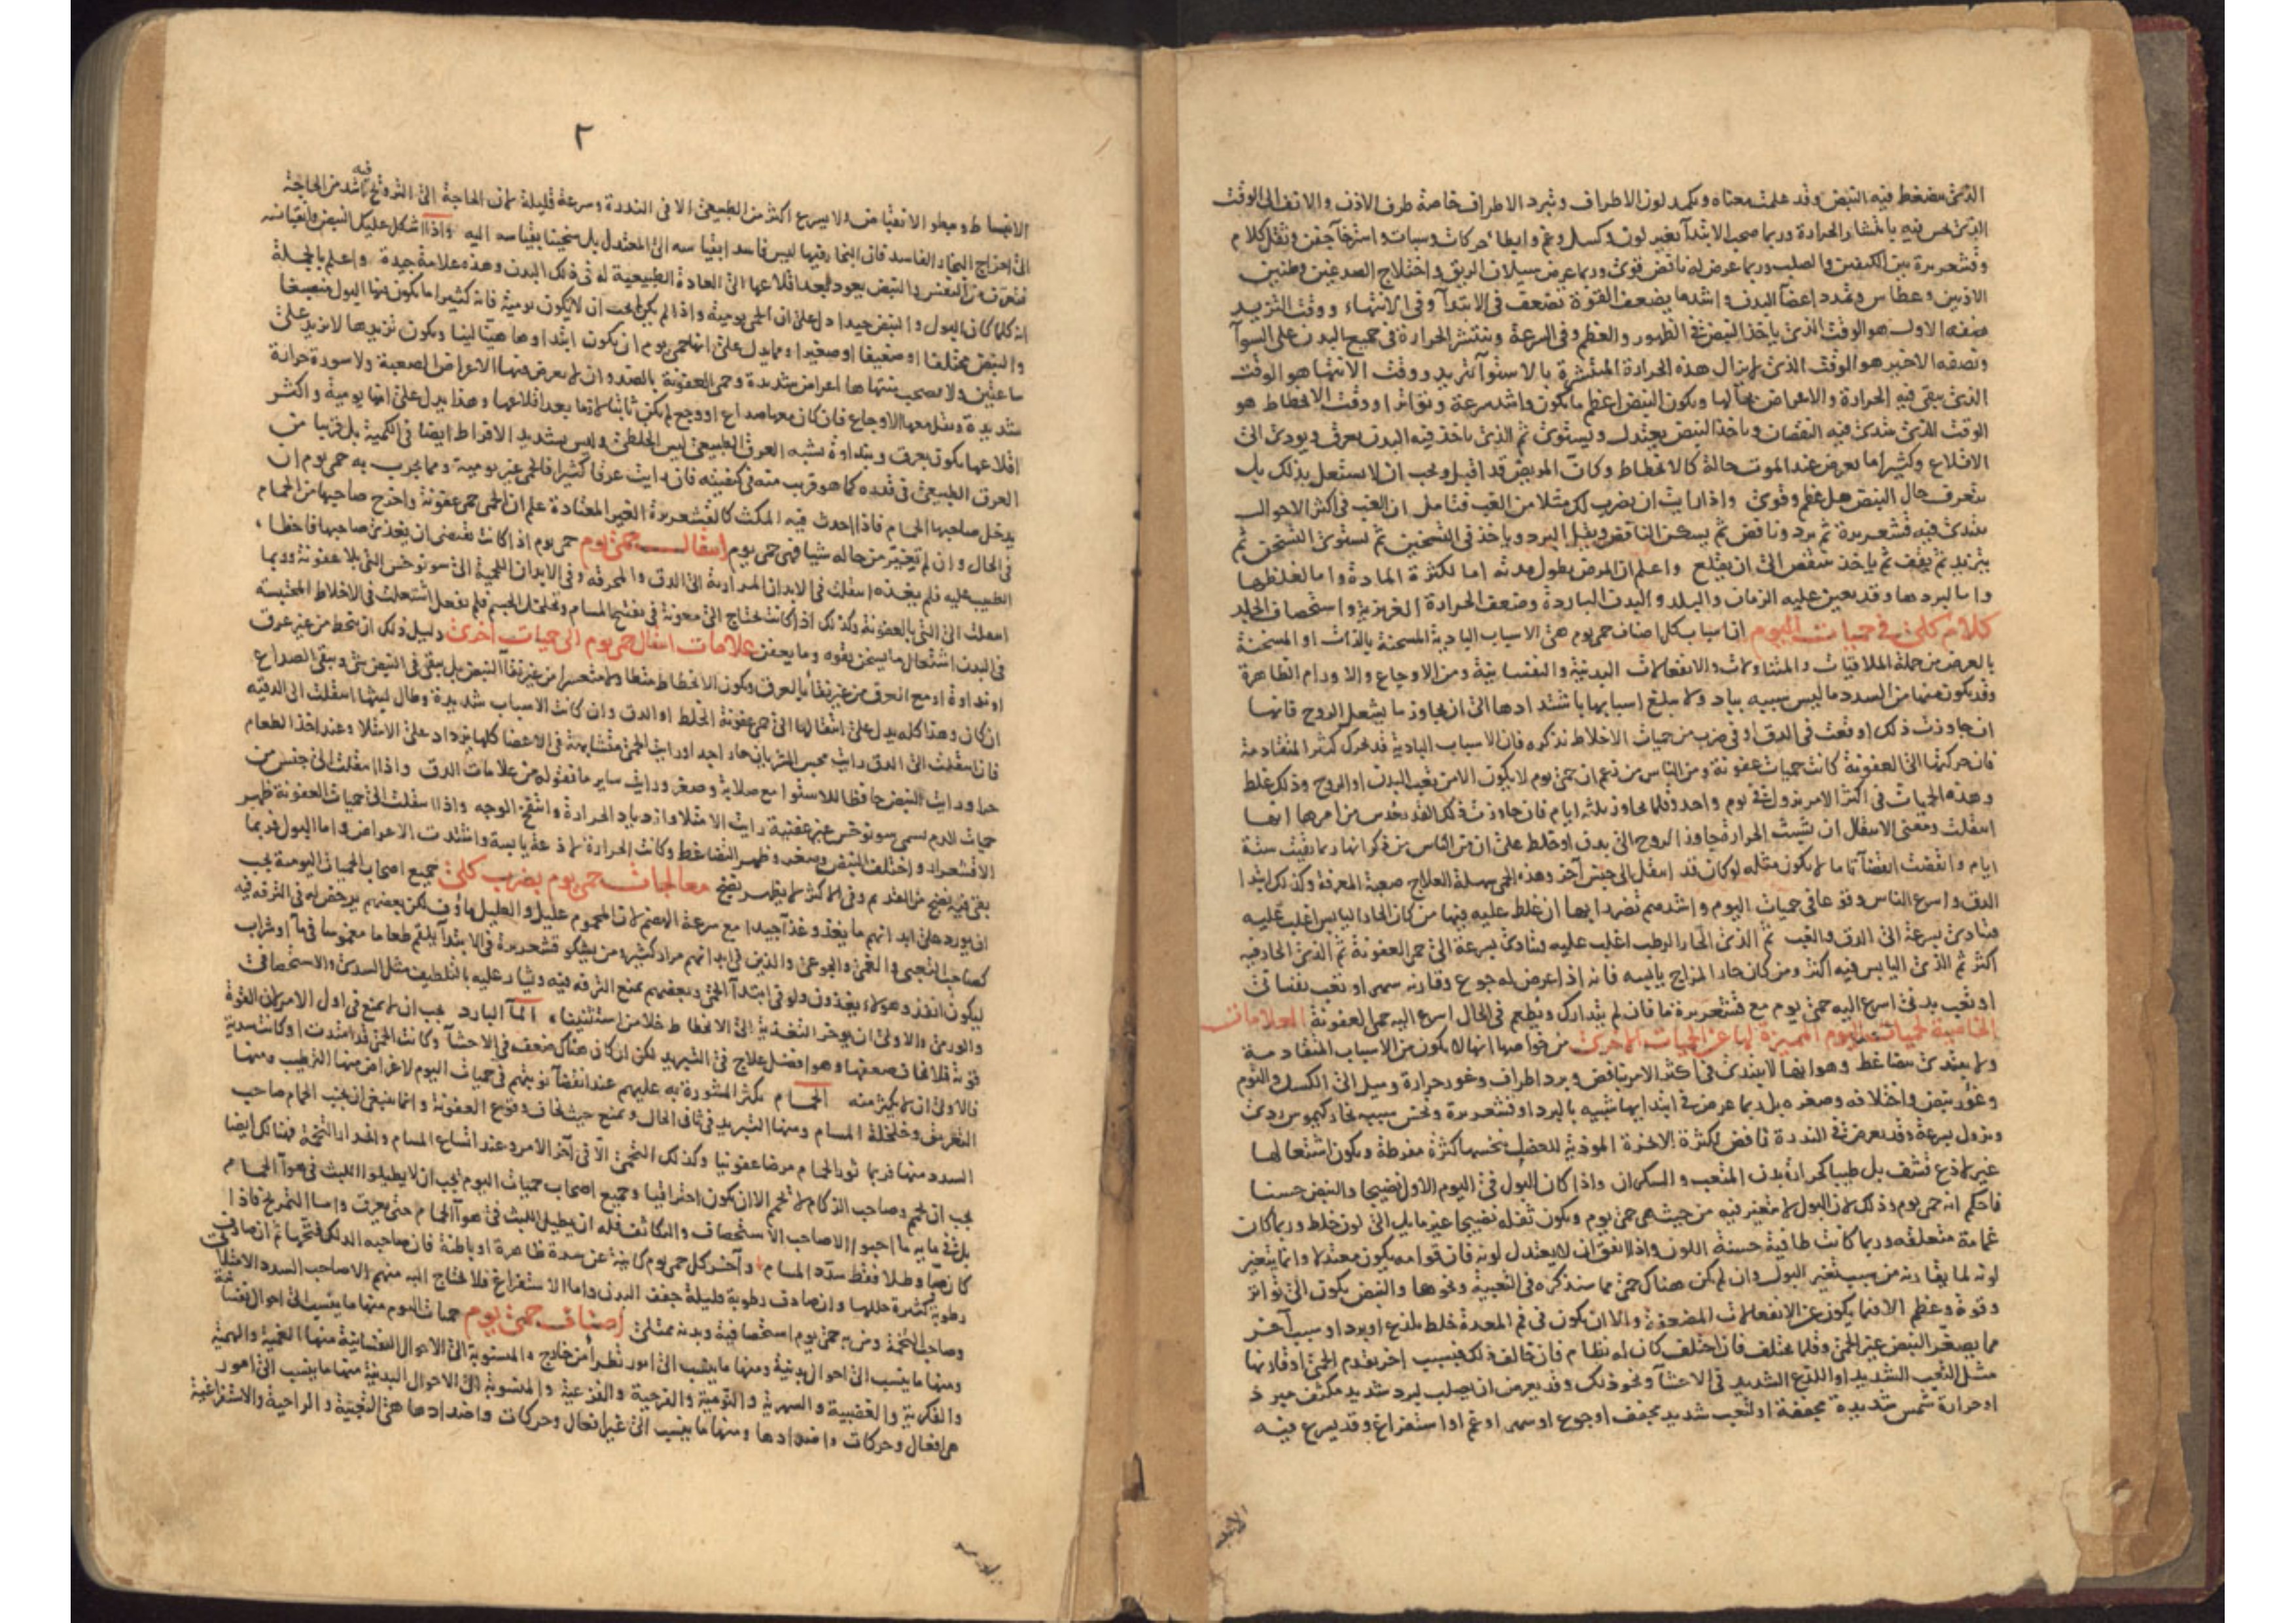 الذى ينضغط فيه النبض وقد علمت معناه ويكمد لون الاطراف وتبرد الاطراف خاصة طرف الاذن والانف الى الوقت
الذى يحس فيه بانتشار الحرارة وربما صحب الابتدآ تغير لون وكسل وغم وابطا حركات وسبات واسترخآ جفن وثقل كلام
وقشعريرة بين الكتفين والصلب وربما عرض له نافض قوى وربما عرض سيلان الريق واختلاج الصدغين وطنين
الاذنين وعطاس وتمدد اعضآ البدن واشد ما يضعف القوة تضعف فى الابتدآ وفى الانتهاء ووقت التزيد
نصفه الاول هو الوقت الذى ياخذ النبض فى الظهور والعظم وفى السرعة وتنتشر الحرارة فى جميع البدن على السوآ
ونصفه الاخير هو الوقت الذى لا يزال هذه الحرارة المنتشرة بالاستوآ تزيد ووقت الانتها هو الوقت
الذى يبقى فيه الحرارة والاعراض بحالها ويكون النبض اعظم ما يكون واشد سرعة وتواترا ووقت الانحطاط هو
الوقت الذى يبتدئ فيه النقصان وياخذ النبض يعتدل ويستوى ثم الذى ياخذ فيه البدن يعرق ويودى الى
الاقلاع وكثيرا ما يعرض عند الموت حالة كالانحطاط وكان المريض قد اقبل ويجب ان لا يشتغل بذلك بل
يتعرف حال النبض هل عظم وقوى واذا رايت ان يضرب لك مثلا من الغب فتامل ان الغب فى اكثر الاحوال
يبتدئ فيه قشعريرة ثم برد ونافض ثم يسكن النافض ويقل البرد وياخذ فى التسخين ثم يستوى التسخن ثم
يتزيد ثم يقف ثم ياخذ ينقص الى ان يقلع واعلم ان المرض يطول مدته اما لكثرة المادة واما لغلظها
واما لبردها وقد يعين عليه الزمان والبلد والبدن الباردة وضعف الحرارة الغريزية واستحصاف الجلد
كلام كلى فى حميات اليوم ان اسباب كل اصناف حمى يوم هى الاسباب البادية المسخنة بالذات او المسخنة
بالعرض من جملة الملاقيات والمتناولات والانفعالات البدنية والنفسانية ومن الاوجاع والاورام الظاهرة
وقد يكون منها من السدد ما ليس سببه بباد ولا يبلغ اسبابها باشتدادها الى ان يجاوز ما يشعل الروح فانها
ان جاوزت ذلك اوقعت فى الدق او فى ضرب من حميات الاخلاط نذكره فان الاسباب البادية قد تحرك كثيرا المتقادمة
فان حركتها الى العفونة كانت حميات عفونة ومن الناس من زعم ان حمى يوم لا يكون الا من تعب البدن او الروح وذلك غلط
وهذه الحميات فى اكثر الامر يزول فى يوم واحد وقلما يجاوز ثلثه ايام فان جاوزت ذلك القدر حدس من امرها انها
انتقلت ومعنى الانتقال ان يتشبث الحرارة يجاوز الروح الى بدن او خلط على ان من الناس من ذكر انها ربما بقيت ستة
ايام وانقضت انقضآ تاما لا يكون مثله لو كان قد انتقل الى جنس آخر وهذه الحمى سهلة العلاج صعبة المعرفة وكذلك ابتدا
الدق واسرع الناس وقوعا فى حميات اليوم واشدهم تضررا بها ان غلط عليه فيها من كان الحار اليابس اغلب عليه
فتادى بسرعة الى الدق والغب ثم الذى الحار الرطب اغلب عليه فتادى بسرعة الى حمى العفونة ثم الذى الحار فيه
اكثر ثم الذى اليابس فيه اكثر ومن كان حار المزاج يابسه فانه اذا عرض له جوع وقارنه سهر او تعب نفسانى
او تعب بدنى اسرع اليه حمى يوم مع قشعريرة ما فان لم يتدارك ويطعم فى الحال اسرع اليه حمى العفونة العلامات
الخاصية لحميات اليوم المميزة لها عن الحميات الاخرى من خواصها انها لا يكون من الاسباب المتقادمة
ولا يبتدئ بتضاغط وهو انها لا يبتدئ فى اكثر الامر بنافض وبرد اطراف وغور حرارة وميل الى الكسل والنوم
وغور نبض واختلافه وصغره بل ربما عرض فى ابتدايها شبيه بالبرد او قشعريرة ونخس بسبب بخار كيموس ردى
ويزول بسرعة وقد يعرض فى الندرة نافض لكثرة الابخرة الموذية للعضل بنخسها كثرة مفرطة ويكون اشتعالها
غير لاذع قشف بل طيبا كحرارة بدن المتعب والسكران واذا كان البول فى اليوم الاول نضيجا والنبض حسنا
فاحكم انه حمى يوم وذلك لان البول لا يتغير فيه من حيث هى حمى يوم ويكون ثفله نضيجا غير مايل الى لون خلط وربما كان
غمامة متعلقه وربما كانت طافية حسنة اللون واذا اتفق ان لا يعتدل لونه فان قوامه يكون معتدلا وانما يتغير
لونه لما يقارنه من سبب تغير البول وان لم يكن هناك حمى مما سنذكره فى التعبية ونحوها والنبض يكون الى تواتر
وقوة وعظم الا فيما يكون عن الانفعالات المضعفة والا ان يكون فى فم المعدة خلط يلذع او برد او سبب آخر
مما يصغر النبض غير الحمى وقلما يختلف فان اختلف كان له نظام فان خالف ذلك فبسبب اخر تقدم الحمى او قارنها
مثل التعب الشديد او اللذع الشديد فى الاحشآ ونحو ذلك وقد يعرض ان يصلب لبرد شديد مكثف مبرد
او حرارة شمس شديدة مجففة او لتعب شديد مجفف او جوع او سهر او غم او استفراغ وقد يسرع فيه
الانبسا
٢
فيه
الانبساط ويبطو الانقباض ولا يسرع اكثر من الطبيعى الا فى الندرة وسرعة قليلة لان الحاجة الى الترويح اشد من الحاجة
الى اخراج البخار الفاسد فان البخار فيها ليس فاسدا بقياسه الى المعتدل بل سخينا بقياسه اليه واذا اشكل عليك النبض وانقباضه
فتعرف من النفس والنبض يعود بعد اقلاعها الى العادة الطبيعية له فى ذلك البدن وهذه علامة جيدة واعلم بالجملة
انه كلما كان البول والنبض جيدا دل على ان الحمى يومية واذا لم يكن لم يجب ان لا يكون يومية فانه كثيرا ما يكون فيها البول منصبغا
والنبض مختلفا او ضعيفا او صغيرا ومما يدل على انها حمى يوم ان يكون ابتداوها هينا لينا ويكون تزيدها لا يزيد على
ساعتين ولا يصحب منتهاها اعراض شديدة وحمى العفونة بالضد وان لا يعرض فيها الاعراض الصعبة ولا سورة حرارة
شديدة ويقل معها الاوجاع فان كان معها صداع او وجع لم يكن ثابتا لازما بعد اقلاعها وهذا يدل على انها يومية واكثر
اقلاعها يكون بعرق وبنداوة يشبه العرق الطبيعى ليس الخلطى وليس بشديد الافراط ايضا فى الكمية بل قريبا من
العرق الطبيعى فى قدره كما هو قريب منه فى كيفيته فان رايت عرقا كثيرا فالحمى غير يومية ومما يجرب به حمى يوم ان
يدخل صاحبها الحمام فاذا احدث فيه المكث كالقشعريرة الغير المعتادة علم ان الحمى حمى عفونة واخرج صاحبها من الحمام
فى الحال وان لم يتغير من حاله شيا فهى حمى يوم انتقال حمى يوم حمى يوم اذا كانت تقتضى ان يغذى صاحبها فاخطا
الطبيب عليه فلم يغذه انتقلت فى الابدان المرارية الى الدق والمحرقه وفى الابدان اللحمية الى سونوخس التى بلا عفونة وربما
انتقلت الى التى بالعفونة وكذلك اذا كانت تحتاج الى معونة فى تفتيح المسام وتخلخل الجسم فلم يفعل اشتعلت فى الاخلاط المحتبسه
فى البدن اشتعال ما يسخن بقوه وما يعفن علامات انتقال حمى يوم الى حميات اخرى دليل ذلك ان ينحط من غير عرق
او نداوة او مع العرق من غير نقآ بالعرق ويكون الانحطاط متطاولا متعسرا من غير نقآ النبض بل يبقى فى النبض شى ويبقى الصداع
ان كان وهذا كله يدل على انتقالها الى حمى عفونة الخلط او الدق وان كانت الاسباب شديدة وطال لبثها انتقلت الى الدقيه
فان انتقلت الى الدق رايت مجس الشريان حارا جدا ورايت الحمى متشابهة فى الاعضا كلها يزداد على الامتلا وعند اخذ الطعام
حرا ورايت النبض حافظا للاستوا مع صلابة وصغر ورايت ساير ما نقوله من علامات الدق واذا انتقلت الى جنس من
حميات الدم يسمى سونوخس غير عفنية رايت الامتلا وازدياد الحرارة وانتفخ الوجه واذا انتقلت الى حميات العفونة ظهر
الاقشعرار واختلف النبض وصغر وظهر التضاغط وكانت الحرارة لاذعة يابسة واشتدت الاعراض واما البول فربما
بقى فيه نضج من القديم وفى الاكثر لا يظهر نضج معالجات حمى يوم بضرب كلى جميع اصحاب الحميات اليومية يجب
ان يورد على ابدانهم ما يغذو غذآ جيدا مع سرعة الهضم لان المحموم عليل والعليل ماوف لكن بعضهم يرخص له فى الترفه فيه
كصاحب التعبى والغمى والجوعى والذين فى ابدانهم مرار كثيرة ومن يشكو قشعريرة فى الابتدآ يلقم طعاما مغموسا فى مآ او شراب
ليكون انفذ وهولاء يغذون ولو فى ابتدآ الحمى وبعضهم يمنع الترفه فيه ويشار عليه بالتلطيف مثل السددى والاستحصافى
والورمى والاولى ان يوخر التغذية الى الانحطاط خلا من استثنيناه المآ البارد يجب ان لا يمنع فى اول الامر لان القوة
قوية فلا يخاف ضعفها وهو افضل علاج فى التبريد لكن ان كان هناك ضعف فى الاحشآ وكانت الحمى قد امتدت او كانت سددية
فالاولى ان لا يكثر منه الحمام يكثر المشورة به عليهم عند انقضآ نوبتهم فى حميات اليوم لاغراض منها الترطيب ومنها
التعريق وخلخلة المسام ومنها التبريد فى ثانى الحال ويمنع حيث يخاف وقوع العفونة وانما ينبغى ان يجتنب الحمام صاحب
السدد منها فربما ثور الحمام مرضا عفونيا وكذلك التخمى الا فى آخر الامر وعند اتساع المسام وانحدار التخمة فهنالك ايضا
يجب ان يحم وصاحب الزكام لا يحم الا ان يكون احتراقيا وجميع اصحاب حميات اليوم يجب ان لا يطيلوا اللبث فى هوآ الحمام
بل فى مايه ما احبوا الا صاحب الاستحصاف والتكاثف فله ان يطيل اللبث فى هوآ الحمام حتى يعرق واما التمريخ فاذا
كان صبا وطلا فقط سدد المسام وآخر كل حمى يوم كاينة عن سدة ظاهرة او باطنة فان صاحبه الدلك فتحها ثم ان صادف
رطوبة كثيرة حللها وان صادف رطوبة قليلة جفف البدن واما الاستفراغ فلا يحتاج اليه منهم الا صاحب السدد الامتلائية
وصاحب التخمة ومن به حمى يوم استحصافية وبدنه ممتلئ اصناف حمى يوم حميات اليوم منها ما ينسب الى احوال نفسانية
ومنها ما ينسب الى احوال بدنية ومنها ما ينسب الى امور تطرأ من خارج والمنسوبة الى الاحوال النفسانية منها الغمية والهمية
والفكرية والغضبية والسهرية والنومية والفرحية والفزعية والمنسوبة الى الاحوال البدنية منها ما ينسب الى امور
هى افعال وحركات واضدادها ومنها ما ينسب الى غير افعال وحركات واضدادها هى التعبية والراحية والاستفراغية